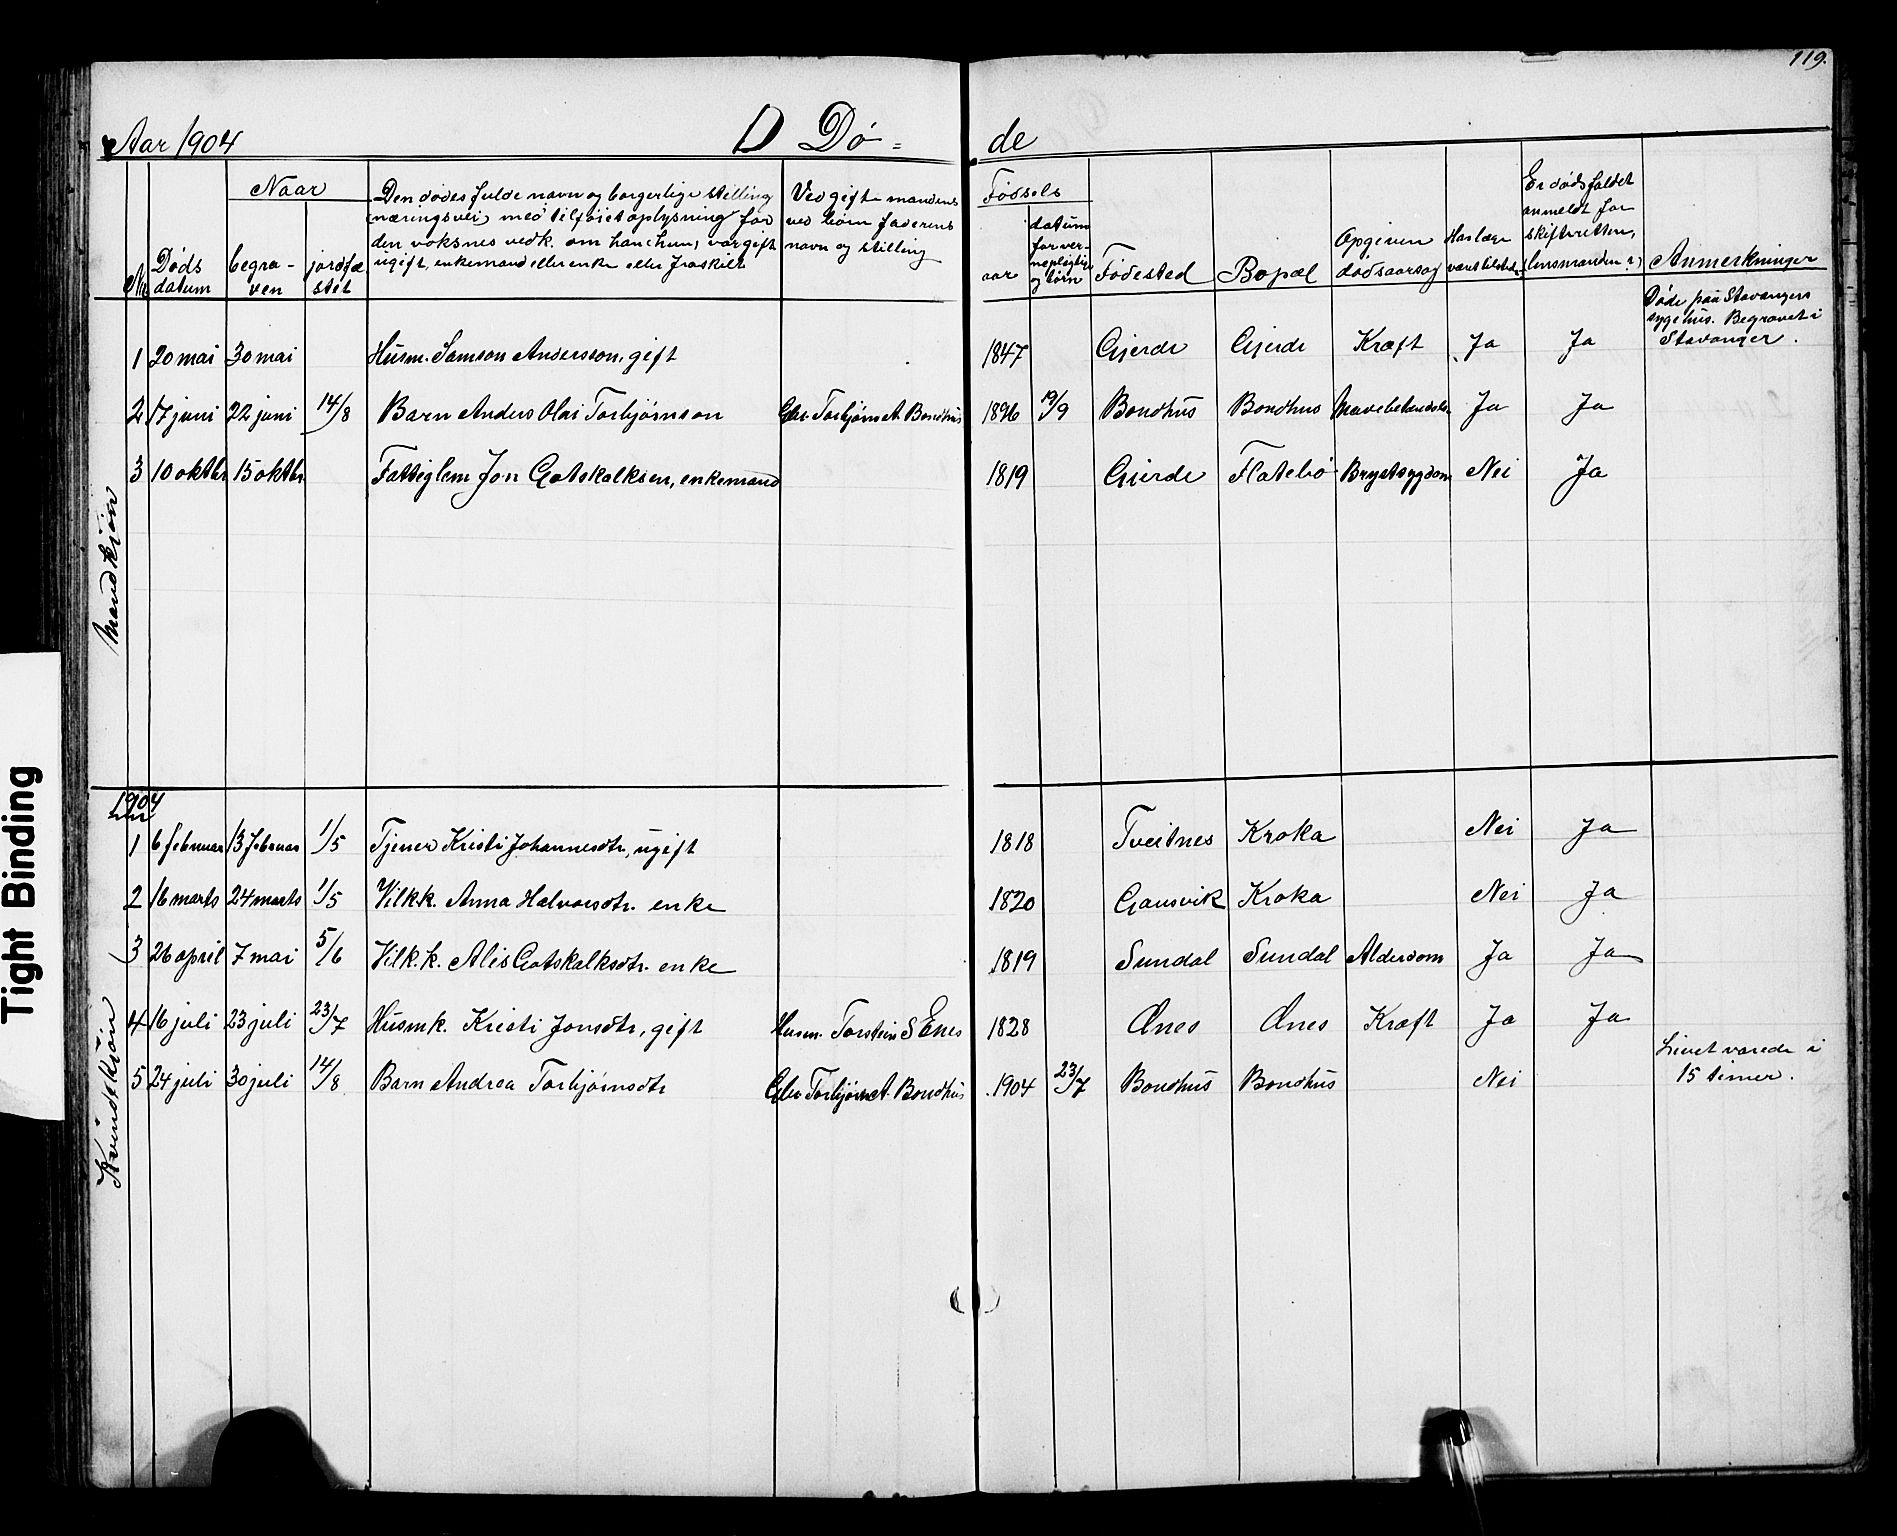 119.
Aar 1904 D Dø- de
Naar
Døds datum
begra-ven
jordfæstet
Den dødes fulde navn og borgerlige stilling
(næringsvei) med tilføiet oplysning for
den voksnes vedk. om han (hun) var gift
ugift, enkemand eller enke eller fraskilt
Ved gifte mandens
ved børn faderens
navn og stilling
Fødsels
aar
datum
for ver-
nepligtige
og børn
Fødested
Bopæl
Opgiven
dødsaarsag
Har læge
været tilstede
Er dødsfaldet
anmeldt for
skifteretten,
(lensmanden?)
Anmerkninger
Mandkjön
1 20 mai 30 mai Husm. Samson Andersson, gift 1847 Gjerde Gjerde Kræft Ja Ja Døde paa Stavangers
sygehus. Begravet i
Stavanger.
2 17 juni 22 juni 14/8 Barn Anders Olai Torbjørnson Gbr. Torbjørn A. Bondhus 1896 19/9 Bondhus Bondhus Ja Ja
3 10 oktbr 15 oktbr. Fattiglem Jon Gotskalksen, enkemand 1819 Gjerde Flatebø Brystsygdom Nei Ja
1904
Kvindekjön
1 6 februar 13 februar 1/5 Tjener Kristi Johannesdtr, ugift 1818 Tveitnes Kroka Nei Ja
2 16 marts 24 marts 1/5 Vilk.k. Anna Halvorsdtr. enke 1820 Gausvik Kroka Nei Ja
3 26 april 7 mai 5/6 Vilk.k. Alis Gotskalksdtr. enke 1819 Sundal Sundal Alderdom Ja Ja
4 16 juli 23 juli 23/7 Husmk. Kristi Jonsdtr, gift Husm. Torstein S Enes 1828 Ænes Ænes Kræft Ja Ja
5 24 juli 30 juli 14/8 Barn Andrea Torbjørnsdtr Gbr. Torbjørn A. Bondhus 1904 23/7 Bondhus Bondhus Nei Livet varede i
15 timer.
Tight Binding